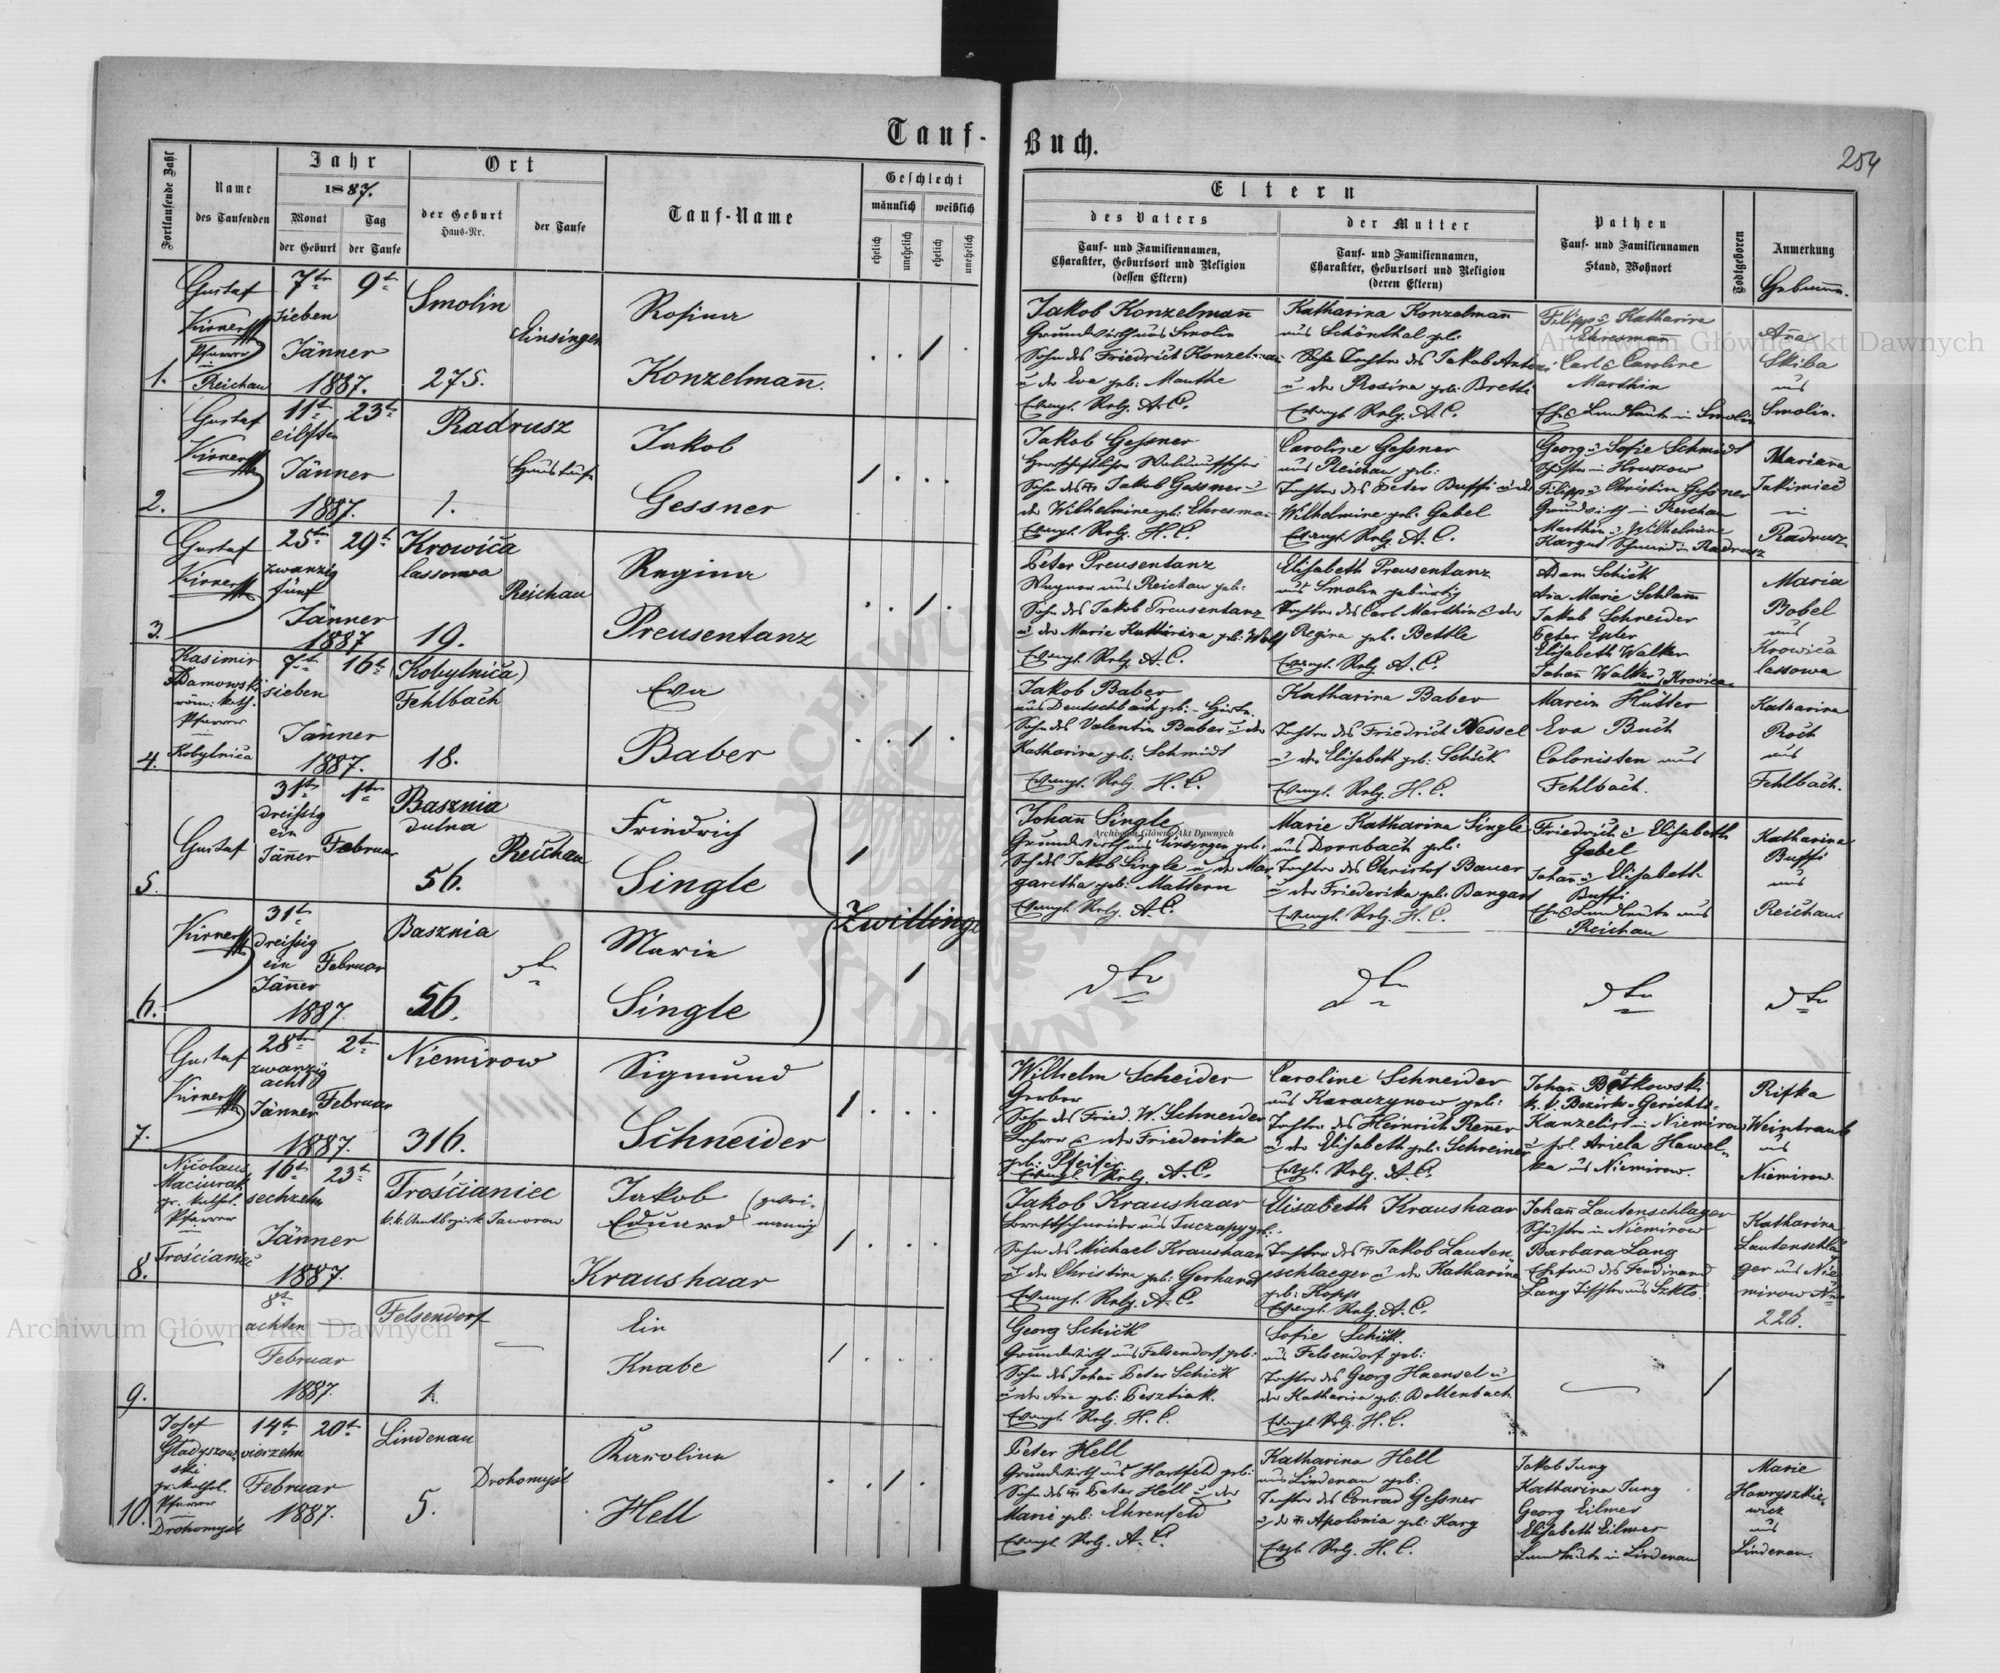 Tauf-Buch.
254
Fortlaufende Zahl
Name
des Taufenden
Jahr
1887.
Monat
der Geburt
Tag
der Taufe
Ort
der Geburt
Haus-Nr.
der Taufe
Tauf-Name
Geschlecht
männlich
weiblich
ehelich
unehelich
ehelich
unehelich
Eltern
des Vaters
Tauf- und Familiennamen,
Charakter, Geburtsort und Religion
(dessen Eltern)
der Mutter
Tauf- und Familiennamen,
Charakter, Geburtsort und Religion
(deren Eltern)
Pathen
Tauf- und Familiennamen
Stand, Wohnort
Todtgeboren
Anmerkung
1.
Gustaf
Pfarrer
Reichau
7ten
sieben
Jänner
1887.
9t
Smolin
275.
Einsingen
Rosina
Konzelmann.
Jakob Konzelmann
Grundwirth aus Smolin
Sohn des Friedrich Konzelmann
u der Eva geb: Mauthe
Evangl. Relg. A.C.
Katharina Konzelmann
aus Schönthal geb:
Tochter des Jakob Antoni
u der Rosina geb: Brettle
Evangl. Relg. A.C.
Filipp & Katharina
Ehresmann
Carl & Caroline
Marthin
Landleute in Smolin
Anna
Skiba
aus
Smolin.
2.
Gustaf
11t
eilften
Jänner
1887.
23t
Radrusz
1.
Haustaufe
Jakob
Gessner
Jakob Gessner
Sohn des Jakob Gessner u
der Wilhelmine geb: Ehresman
Evangl. Relg. H.C.
Caroline Gessner
aus Reichau geb:
Tochter des Peter Buffi u der
Wilhelmine geb: Gabel
Evangl. Relg. A.C.
Georg u Sofie Schmidt
in Hruszow
Filipp u Christina Gessner
Grundwirth in Reichau
Marthin u Wilhelmine
Kargut Schmid in Radrusz
Marianna
Jakimiec
in
Radrusz
3.
Gustaf
25ten
zwanzig
fünf
Jänner
1887
29t
Krowica
lassowa
19.
Reichau
Regina
Preusentanz
Peter Preusentanz
Wagner aus Reichau geb:
Sohn des Jakob Preusentanz
u der Marie Katharina geb: Wolf
Evangl. Relg. A.C.
Elisabeth Preusentanz
aus Smolin gebürtig
Tochter des Carl Marthin & der
Regina geb. Bettle
Evangl. Relg. A.C.
Adam Schick
Ana Marie Schlamm
Jakob Schneider
Peter Exler
Elisabeth Walker
Johann Walker aus Krowica
Maria
Bobel
aus
Krowica
lassowa
4.
Kasimir
Damowski
röm: kath.
Pfarrer
Kobylnica
7t
sieben
Jänner
1887.
16t
(Kobylnica)
Fehlbach
18.
Eva
Baber
Jakob Baber
aus Deutschbach geb:
Sohn des Valentin Baber u der
Katharina geb: Schmidt
Evangl. Relg. H.C.
Katharina Baber
Tochter des Friedrich Wessel
u der Elisabeth geb: Schick
Evangl. Relg. H.C.
Marcin Hütter
Eva Buch
Colonisten aus
Fehlbach.
Katharina
Roch
aus
Fehlbach.
5.
Gustaf
31ten
dreißig
ein
Jänner
1ten
Februar
Basznia
dulna
56.
Reichau
Friedrich
Single
Zwillinge
Johann Single
Grundwirth aus Einsingen geb:
Sohn des Jakob Single u der Mar
garetha geb: Mattern
Evangl. Relg. A.C.
Marie Katharina Single
aus Dornbach geb:
Tochter des Christof Bauer
u der Friederika geb: Bangart
Evangl. Relg. H.C.
Friedrich & Elisabeth
Gabel
Johann & Elisabeth
Buffi
Landleute aus
Reichau
Katharina
Buffi
aus
Reichau
6.
31t
dreißig
ein
Jänner
1887.
Februar
Basznia
56.
dto
Marie
Single
dto
dto
dto
dto
7.
Gustaf
28ten
zwanzig
acht
Jänner
1887.
2t
Februar
Niemirow
316.
Sigmund
Schneider
Wilhelm Scheider
Gerber
Sohn des Fried. W. Schneider
Lehrer u der Friederika
geb: Pfeifer
Evangl. Relg. A.C.
Caroline Schneider
aus Karaczynow geb:
Tochter des Heinrich Renner
u der Elisabeth geb: Schreiner
Evgl. Relg. A.C.
Johann Botkowski
k.k. Bezirks-Gerichts-
Kanzelist in Niemirow
Ariela Hawel-
ka aus Niemirow.
Rifka
Weintraub
aus
Niemirow
8.
Nicolaus
Maciurak
gr. kathol.
Pfarrer
Trościaniec
16t
sechzehn
Jänner
1887.
23t
Trościaniec
k.k. Amtbezirk Jaworow
Jakob
Eduard
Kraushaar
Jakob Kraushaar
Brettschneider aus Tuczapy geb:
Sohn des Michael Kraushaar
u der Christina geb: Gerhard
Evangl. Relg. A.C.
Elisabeth Kraushaar
Tochter des Jakob Lauten
schlaeger u der Katharina
geb: Kopp
Evangl. Relg. A.C.
Johann Lautenschlager
Schuster in Niemirow
Barbara Lang
Ehefrau des Ferdinand
Lang Tischler aus Szklo.
Katharina
Lautenschla
ger aus Nie
mirow No
226.
9.
8t
achten
Februar
1887.
Felsendorf
1.
Ein
Knabe
Georg Schick
Grundwirth aus Felsendorf geb:
Sohn des Johann Peter Schick
u der Ana geb: Pesztiak.
Evangl. Relg. H.C.
Sofie Schick
aus Felsendorf geb:
Tochter des Georg Haensel u
der Katharina geb: Dottenbach
Evangl. Relg. H.C.
10.
Josef
Gladyszow
ski
gr. kathol.
Pfarrer
Drohomyśl
14t
vierzehn
Februar
1887.
20t
Lindenau
5.
Drohomyśl
Karolina
Hell
Peter Hell
Grundwirth aus Hartfeld geb:
Sohn des Peter Hell u der
Marie geb: Ehrenfeld
Evangl. Relg. A.C.
Katharina Hell
aus Lindenau geb:
Tochter des Conrad Gessner
u der Apolonia geb: Karg
Evgl. Relg. H.C.
Jakob Jung
Katharina Jung
Georg Eilmer
Elisabeth Eilmer
Landleute in Lindenau
Marie
Hawryszkie-
wicz
aus
Lindenau.
Archiwum Główne Akt Dawnych
Archiwum Główne Akt Dawnych
Archiwum Główne Akt Dawnych